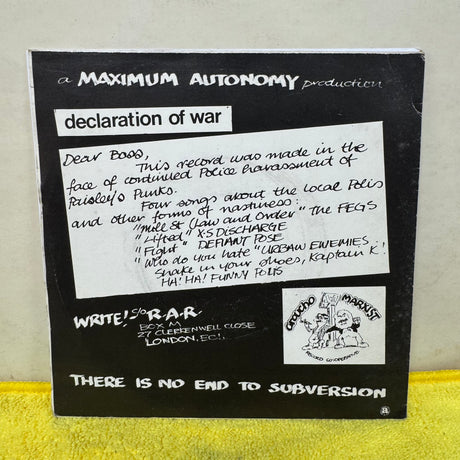 a MAXIMUM AUTONOMY production
declaration of war
Dear Boss,
This record was made in the
face of continued Police harassment of
Paisley's Punks.
Four songs about the Local Polis
and other forms of nastiness:
"Mill St (Law and Order" The FEGS
"Lifted" X-S DISCHARGE
"Fight" DEFIANT POSE
"Who do you hate" URBAN ENEMIES
Shake in your shoes, Kaptain K!
HA! HA! FUNNY POLIS
WRITE! c/o R.A.R.
BOX M
27 CLERKENWELL CLOSE
LONDON, EC1.
GROUCHO MARXIST
RECORD CO:OPERATIVE
THERE IS NO END TO SUBVERSION